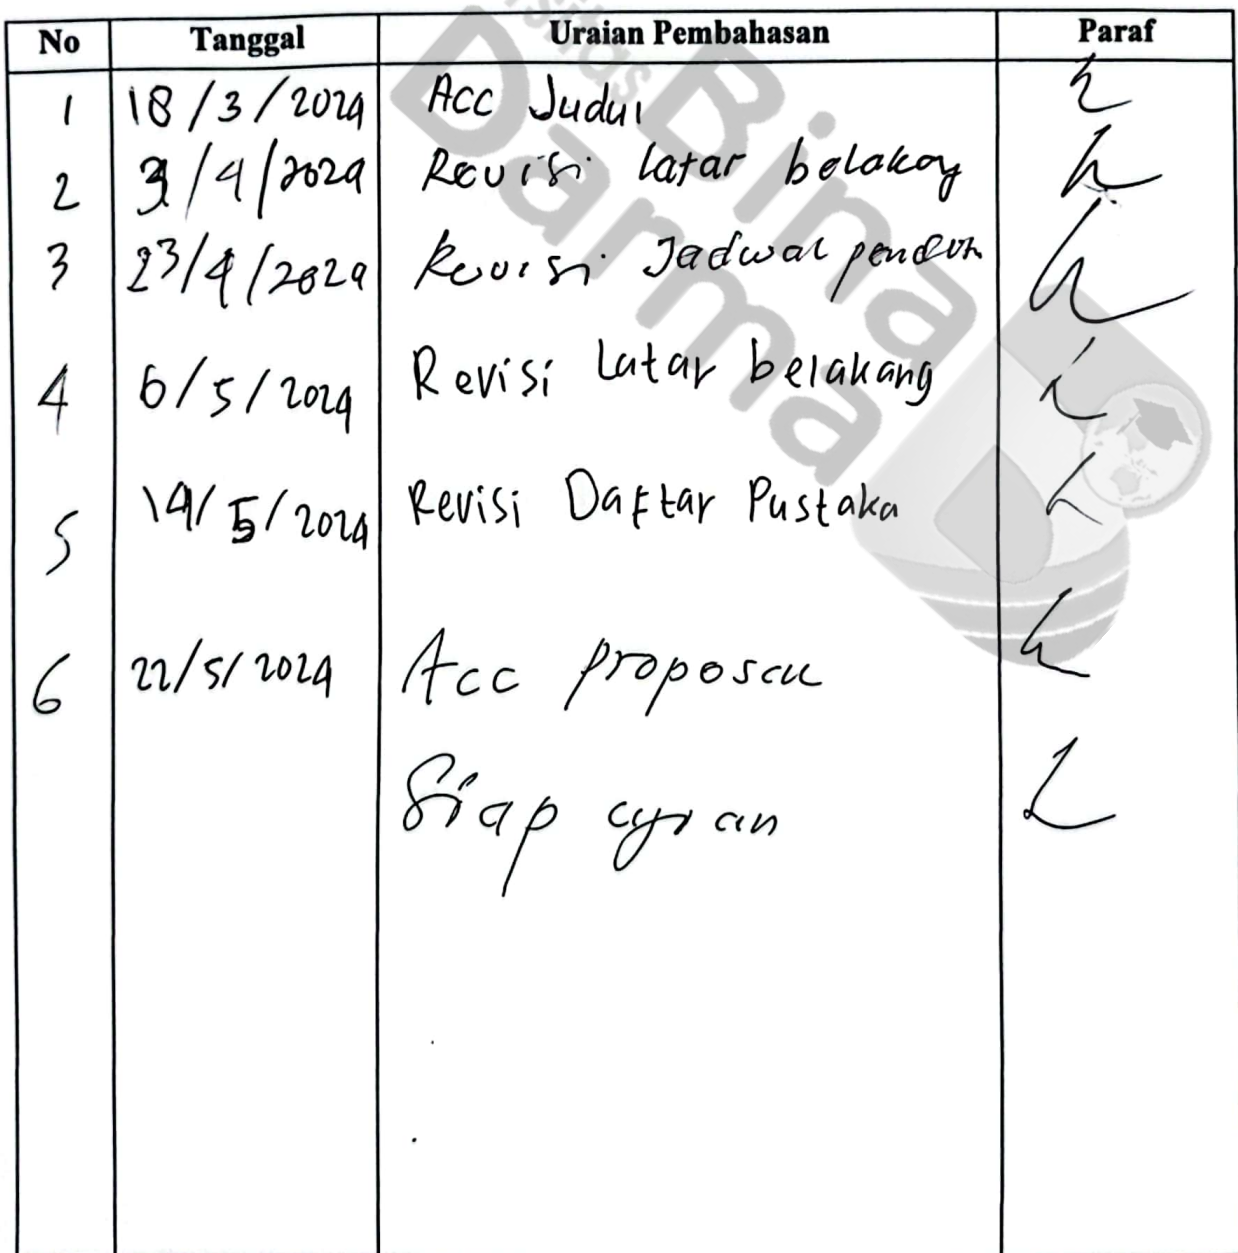 No Tanggal Uraian Pembahasan Paraf
1 18/3/2024 Acc Judul
2 3/4/2024 Revisi latar belakang
3 23/4/2024 Revisi Jadwal
4 6/5/2024 Revisi Latar belakang
5 14/5/2024 Revisi Daftar Pustaka
6 22/5/2024 Acc proposal
Siap
Bina
Darma